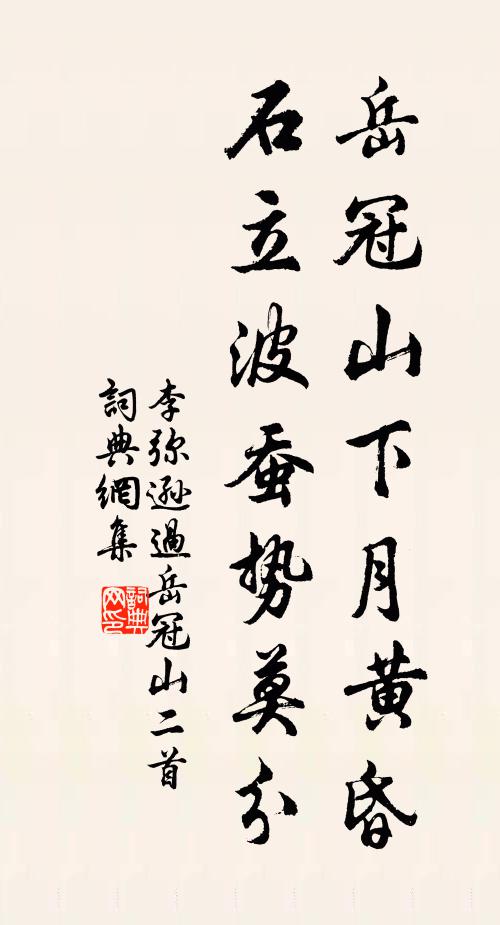 岳冠山下月黄昏
石立波蚕势莫分
李弥逊過岳冠山二首
詞典網集
詞典网印